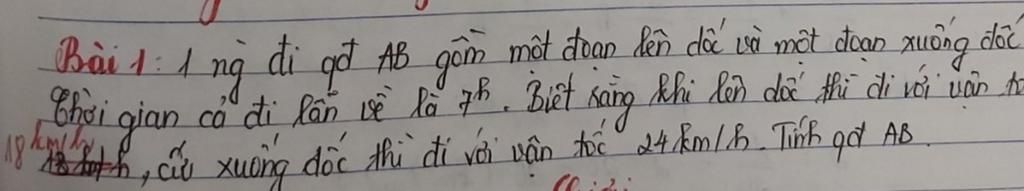 Bài 1: 1 ng đi qđ AB gồm một đoạn lên dốc và một đoạn xuống dốc
Thời gian cả đi lẫn về là 7h. Biết rằng khi lên dốc thì đi với vận tố
18 km/h, còn xuống dốc thì đi với vận tốc 24km/h. Tính qđ AB.